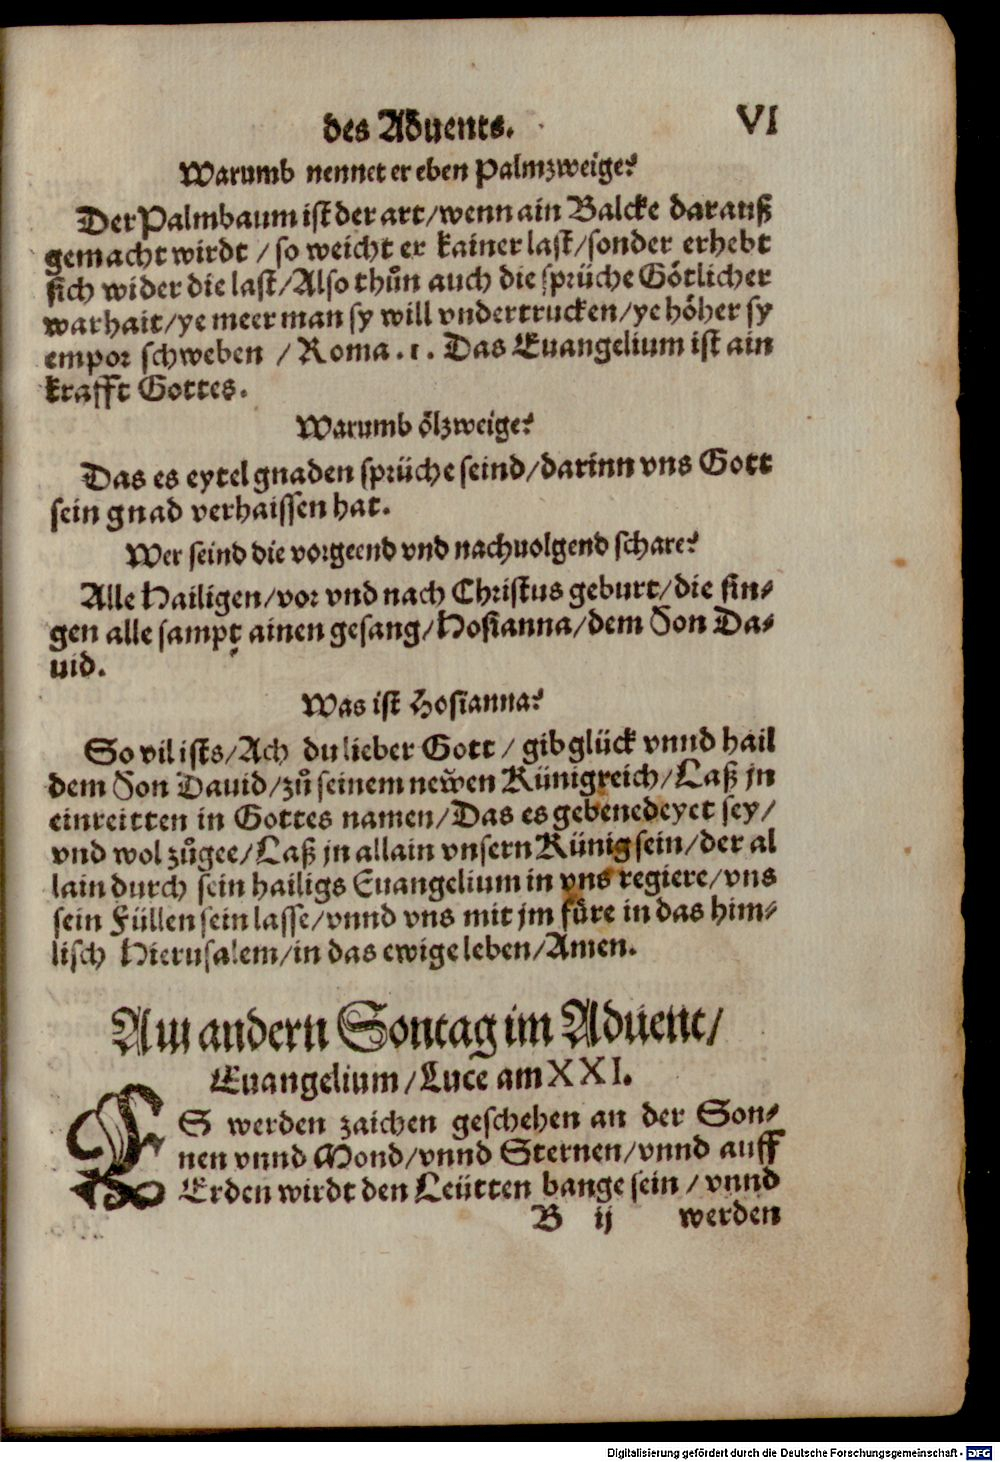 des Aduents.
VI
Warumb nennet er eben Palmzweige?
Der Palmbaum ist der art/wenn ain Balcke darauß
gemacht wirdt / so weicht er kainer last/sonder erhebt
sich wider die last/Also thůn auch die sprüche Götlicher
warhait/ye meer man sy will vndertrucken/ye höher sy
empor schweben / Roma .1. Das Euangelium ist ain
krafft Gottes.
Warumb ölzweige?
Das es eytel gnaden sprüche seind/darinn vns Gott
sein gnad verhaissen hat.
Wer seind die vorgeend vnd nachuolgend schare?
Alle Hailigen/vor vnd nach Christus geburt/die sin-
gen alle sampt ainen gesang/Hosianna/dem Son Da-
uid.
Was ist Hosianna?
So vil ists/Ach du lieber Gott / gib glück vnnd hail
dem Son Dauid/zů seinem neẅen Künigreich/Laß jn
einreitten in Gottes namen/Das es gebenedeyet sey/
vnd wol zůgee/Laß jn allain vnsern Künig sein/der al
lain durch sein hailigs Euangelium in vns regiere/vns
sein Füllen sein lasse/vnnd vns mit jm füre in das him-
lisch Hierusalem/in das ewige leben/Amen.
Am andern Sontag im Aduent/
Euangelium/Luce am XXI.
ES werden zaichen geschehen an der Son-
nen vnnd Mond/vnnd Sternen/vnnd auff
Erden wirdt den Leütten bange sein / vnnd
B ij werden
Digitalisierung gefördert durch die Deutsche Forschungsgemeinschaft - DFG